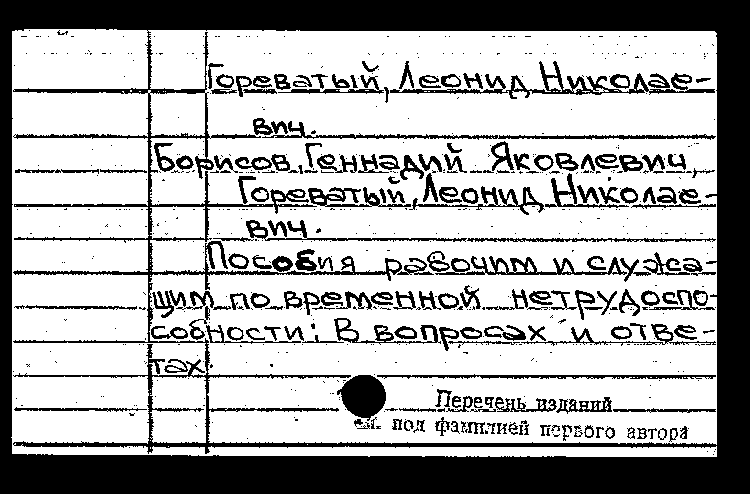 Гореватый, Леонид Николае-
вич.
Борисов, Геннадий Яковлевич,
Гореватый, Леонид Николае-
вич.
Пособия рабочим и служа-
щим по временной нетрудоспо-
собности: В вопросах и отве-
тах.
Перечень изданий
см. под фамилией первого автора